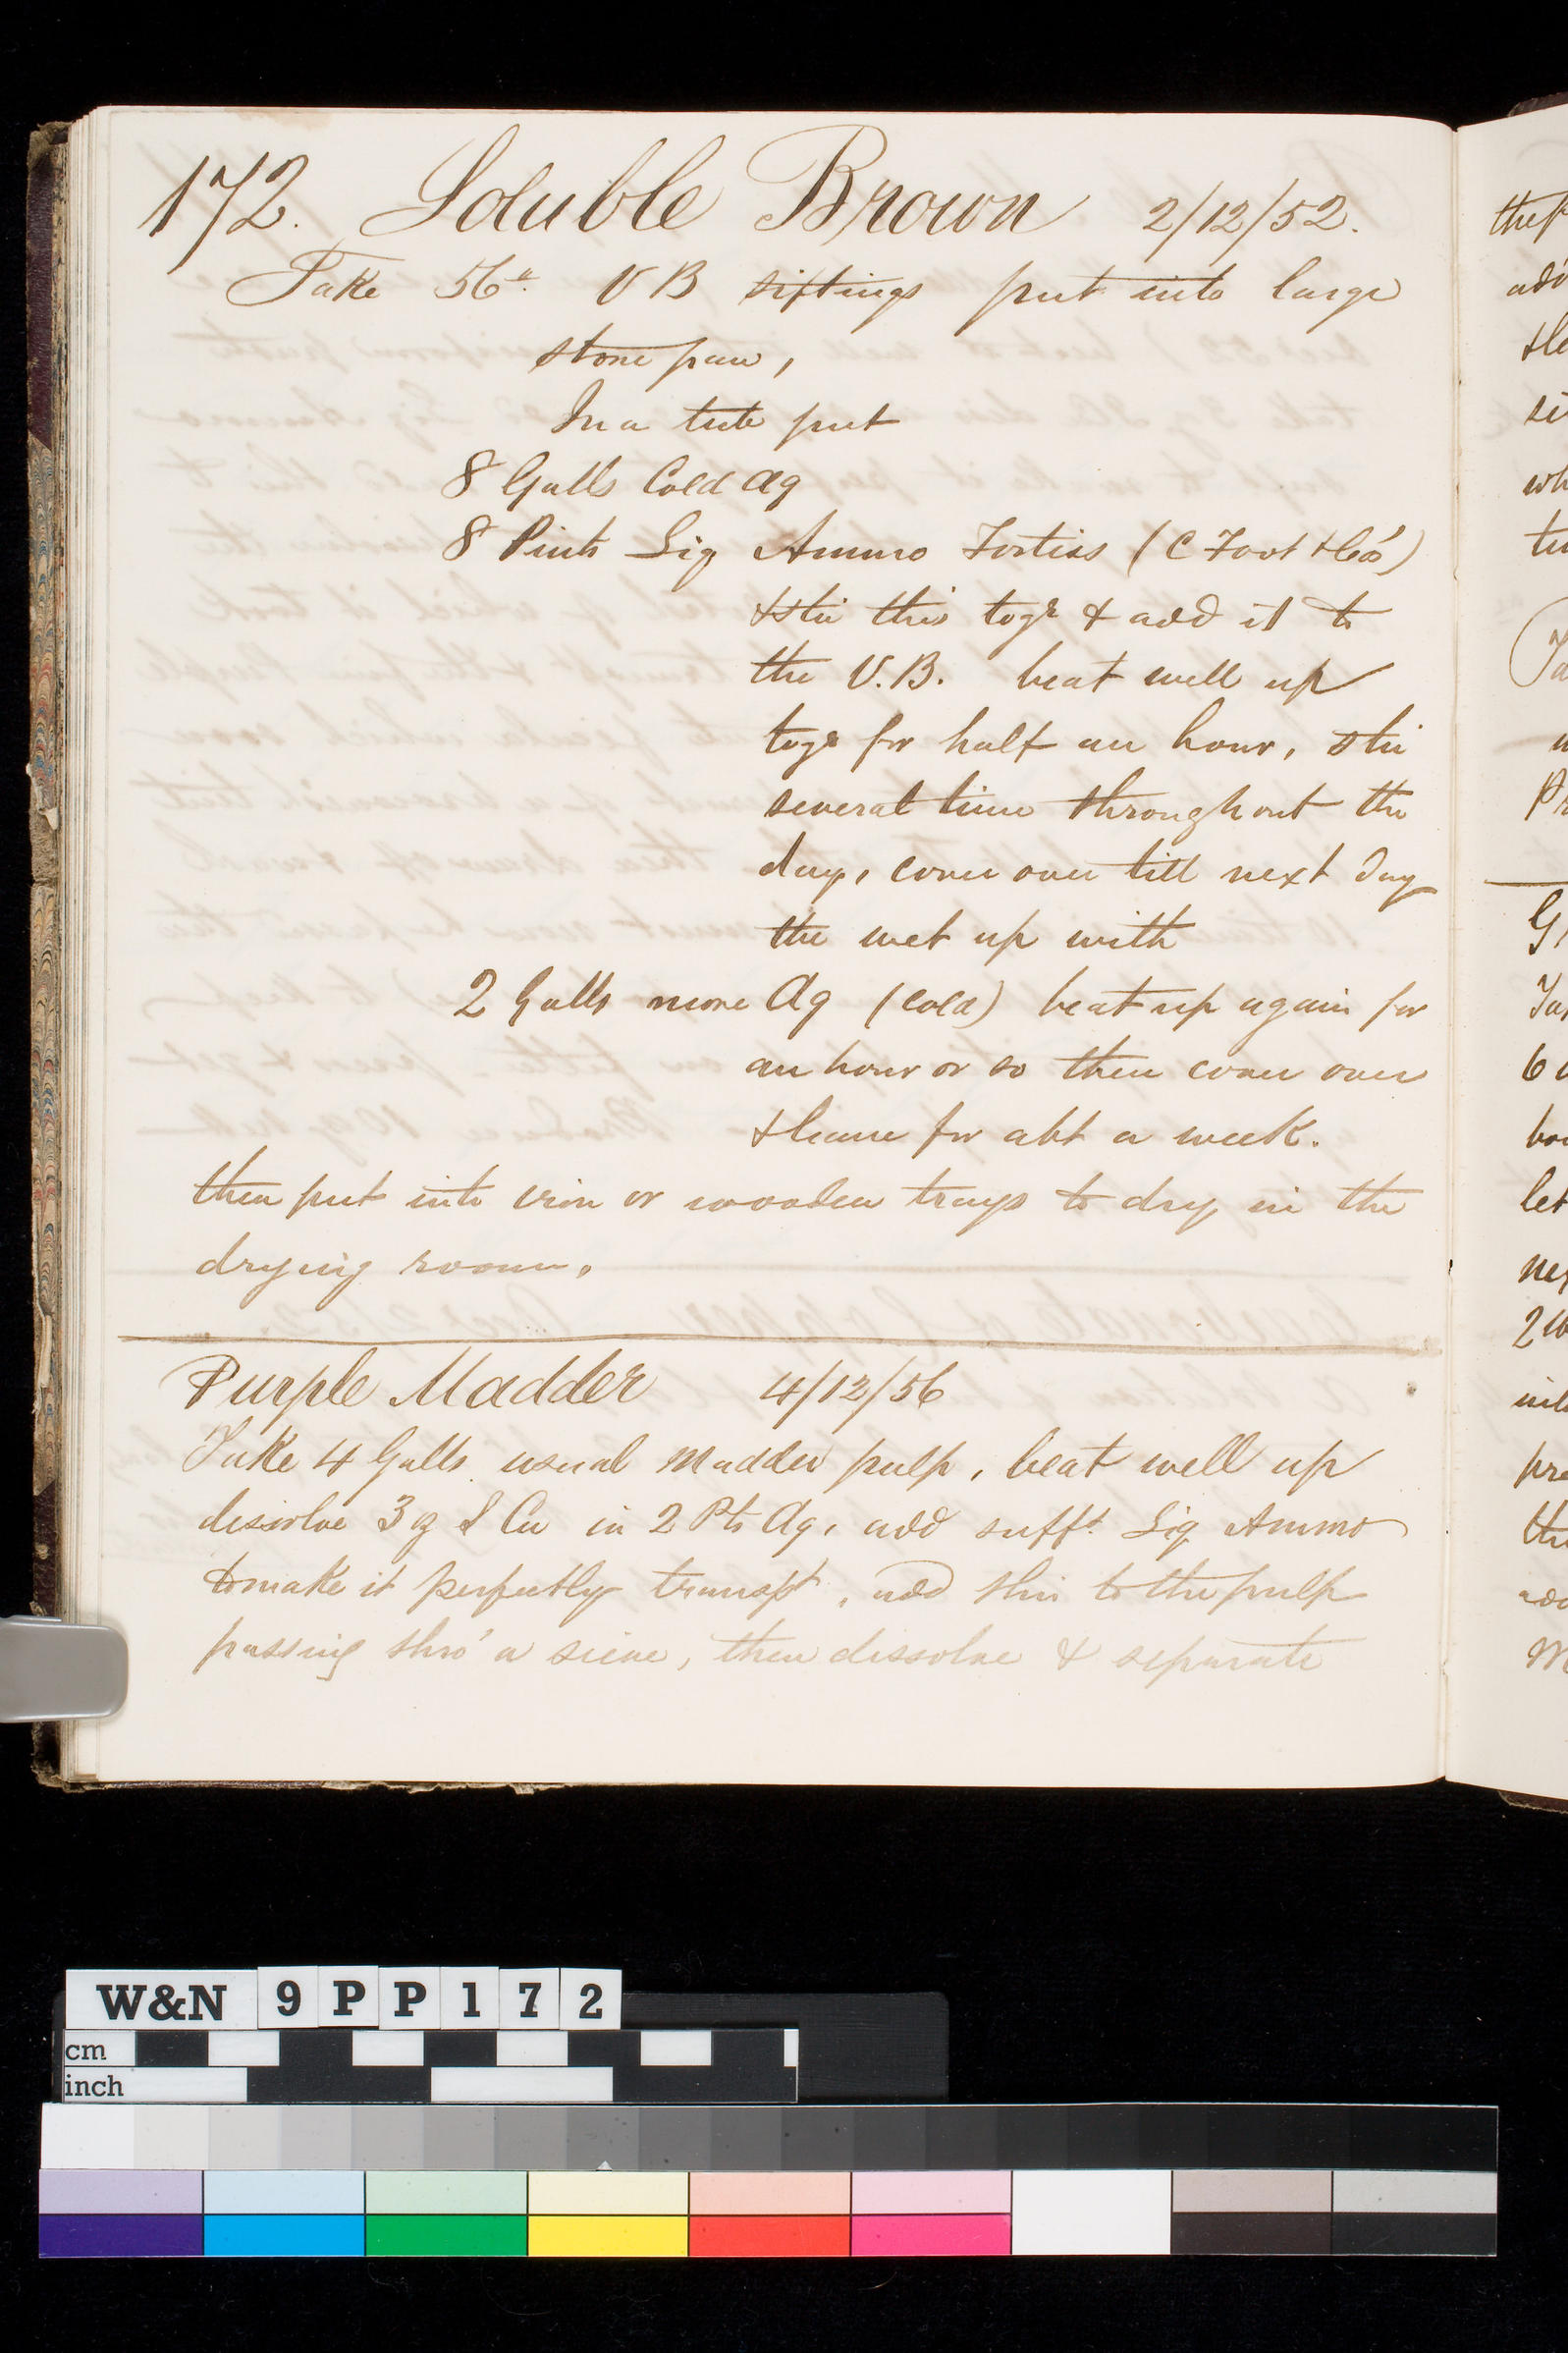 172. Soluble Brown 2/12/52.
Take 56lb. V B siftings put into large
stone pan,
In a tub put
8 Galls Cold Aq
8 Pints Liq Ammo Fortiss (C Foot & Co's)
& stir this togr & add it to
the V.B. beat well up
togr for half an hour, stir
several time throughout the
day, cover over till next day
the wet up with
2 Galls more Aq (cold) beat up again for
an hour or so then cover over
& leave for abt a week.
then put into iron or wooden trays to dry in the
drying room.
Purple Madder 4/12/56
Take 4 Galls. usual Madder pulp, beat well up
dissolve 3 oz S Cu in 2 Pts Aq, add sufft Liq Ammo
to make it perfectly transpt, add this to the pulp
passing thro' a sieve, then dissolve & separate
the
si
wh
6
let
2
the
W&N 9PP172
cm
inch